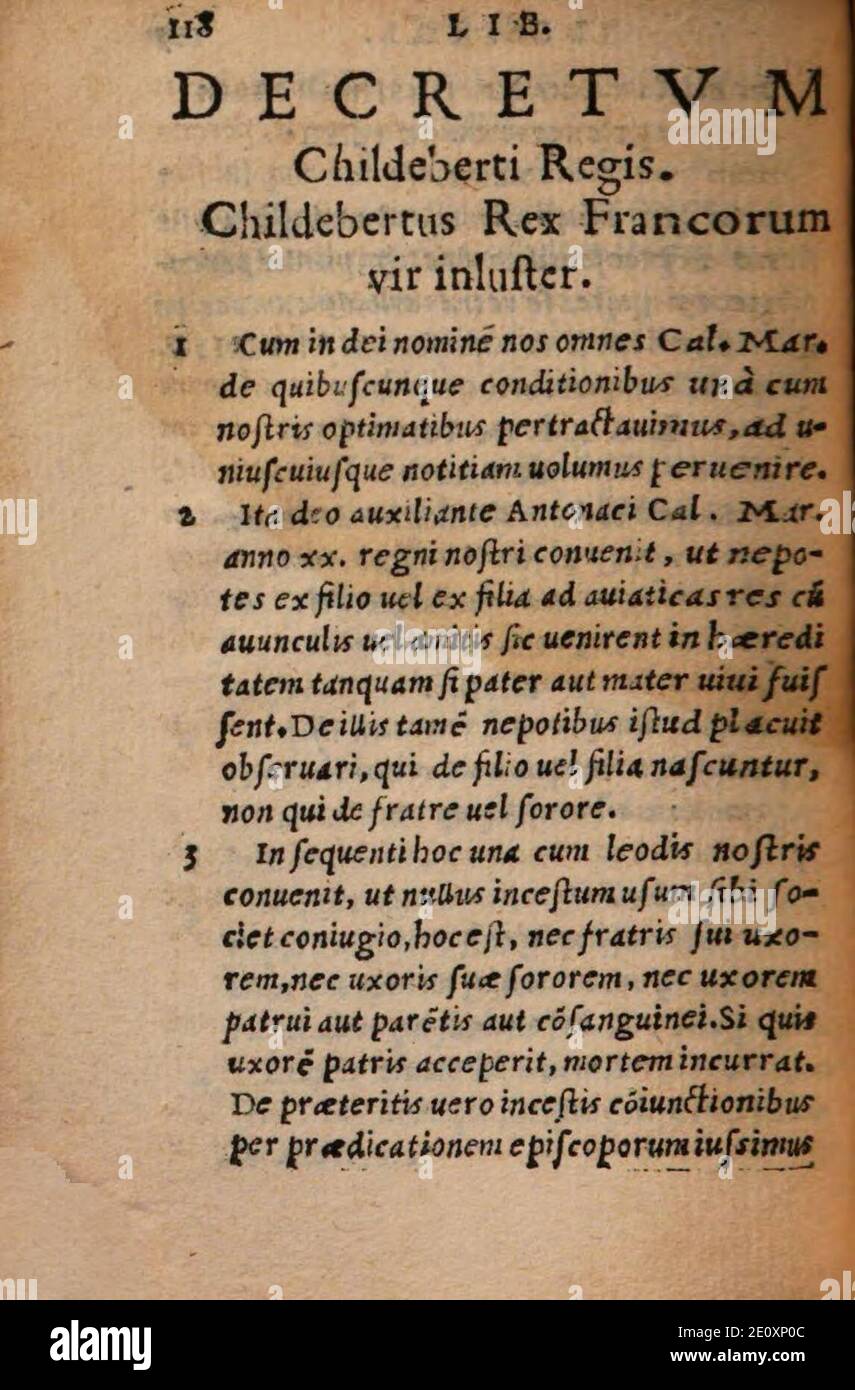 118 LIB.
DECRETVM
Childeberti Regis.
Childebertus Rex Francorum
vir inluſter.
1 Cum in dei nominé nos omnes Cal. Mar.
de quibuſcunque conditionibus unà cum
noſtris optimatibus pertractauimus, ad u-
niuſcuiuſque notitiam uolumus peruenire.
2 Ita deo auxiliante Antonaci Cal. Mar.
anno xx. regni noſtri conuenit, ut nepo-
tes ex filio uel ex filia ad auiaticas res cū
auunculis uel amitis ſic uenirent in hæredi
tatem tanquam ſi pater aut mater uiui fuiſ
ſent. De illis tamē nepotibus iſtud placuit
obſeruari, qui de filio uel filia naſcuntur,
non qui de fratre uel ſorore.
3 In ſequenti hoc una cum leodis noſtris
conuenit, ut nullus inceſtum uſum ſibi ſo-
ciet coniugio, hoc eſt, nec fratris ſui uxo-
rem, nec uxoris ſuæ ſororem, nec uxorem
patrui aut parētis aut cōſanguinei. Si quis
uxorē patris acceperit, mortem incurrat.
De præteritis uero inceſtis cōiunctionibus
per prædicationem epiſcoporum iuſsimus
alamy
Image ID: 2E0XP0C
www.alamy.com